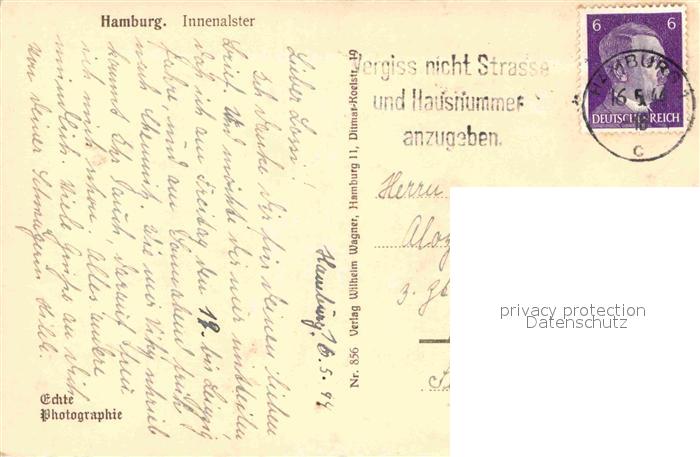 Hamburg. Innenalster
Hamburg, 16.5.44
Lieber Loni!
Ich danke dir für deinen lieben
Brief. Und möchte dir nur mitteilen
daß ich am Freitag den 19. bis Leipzig
fahre, und am Sonnabend früh
nach Chemnitz. Wie mir Viky schrieb
kommst du auch, darauf freue
ich mich schon. Alles andere
mündlich. Viele Grüße an dich
von deiner Schwägerin Hilde.
Echte
Photographie
Nr. 856 Verlag Wilhelm Wagner, Hamburg 11, Ditmar-Koelstr. 19
Vergiss nicht Strasse
und Hausnummer
anzugeben.
6 6
DEUTSCHES REICH
HAMBURG
16.5.44
18
C
Herrn
Aloy
privacy protection
Datenschutz